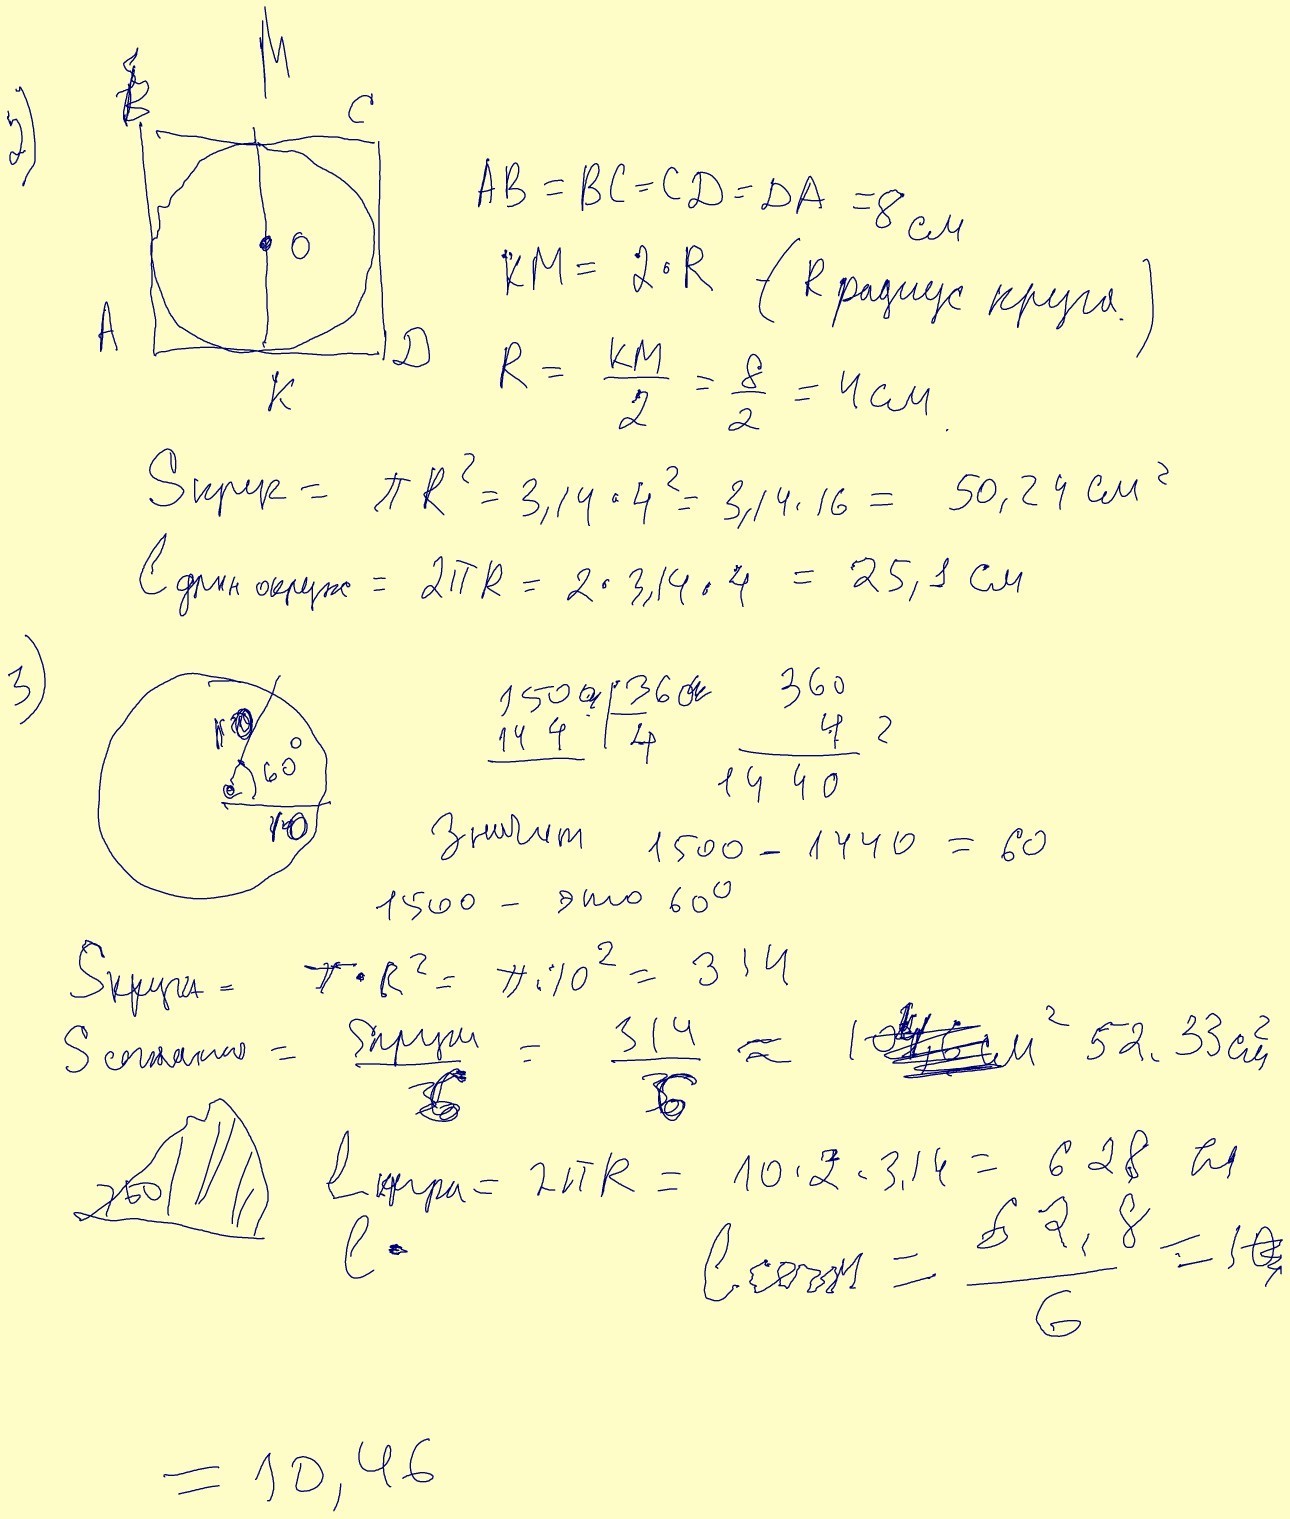 2)
M
B C
AB = BC = CD = DA = 8 см
O
KM = 2·R (R радиус круга.)
A D
K
R = KM/2 = 8/2 = 4 см.
Sкруг = πR² = 3,14·4² = 3,14·16 = 50,24 см²
C длин окруж = 2πR = 2·3,14·4 = 25,1 см
3)
1500 360 360
144 4 4
1440
60°
10
Значит 1500 - 1440 = 60
1500 - это 60°
Sкруга = π·R² = π·10² = 314
S = Sкруги/6 = 314/6 ≈ см² 52.33 см²
260
= 2πR = 10·2·3,14 = 628 см
C
C = 62,8/6 = 10
= 10,46